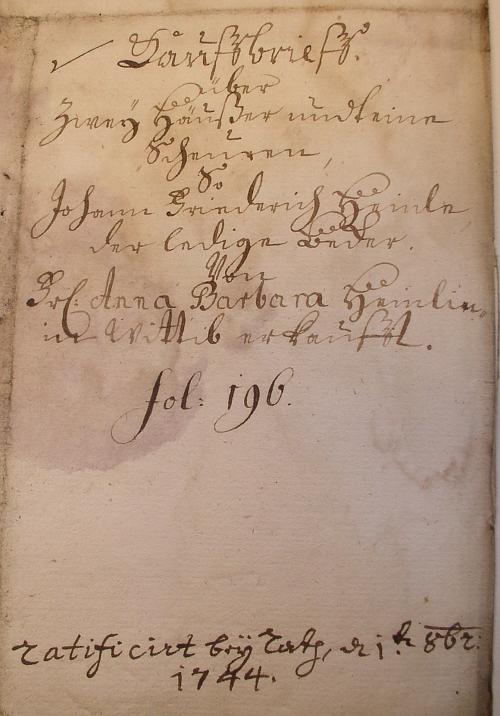 Kauffbrieff.
über
Zwey Häußer und eine
Scheuren,
So
Johann Friederich Heinle,
der ledige Beder.
Von
Frl. Anna Barbara Heinlin-
in Wittib erkaufft.
fol: 196.
ratificirt bey Rath, d 1. t. 8br:
1744.